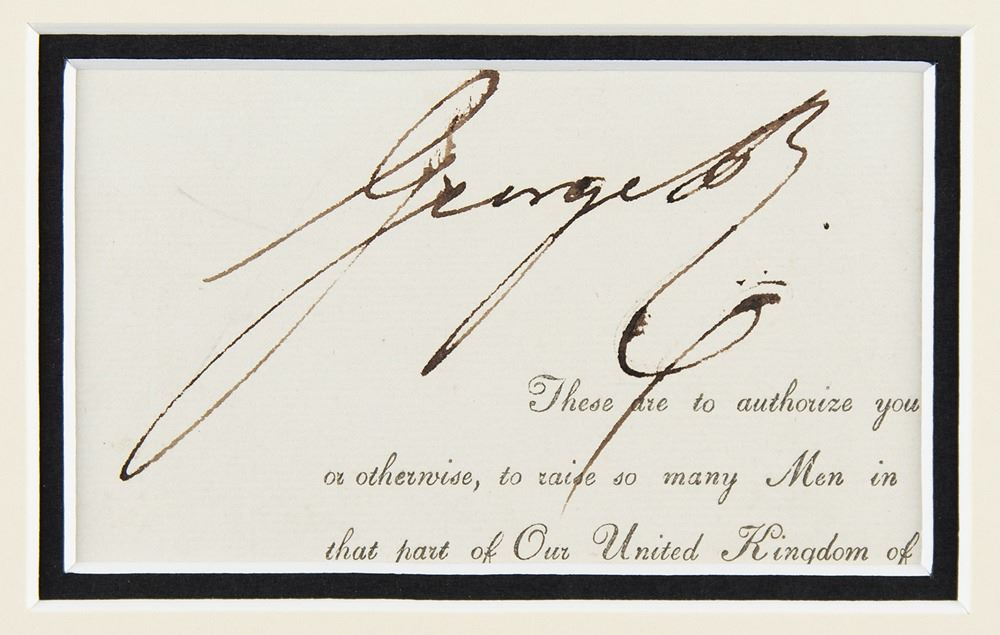 George R.
These are to authorize you
or otherwise, to raise so many Men in
that part of Our United Kingdom of